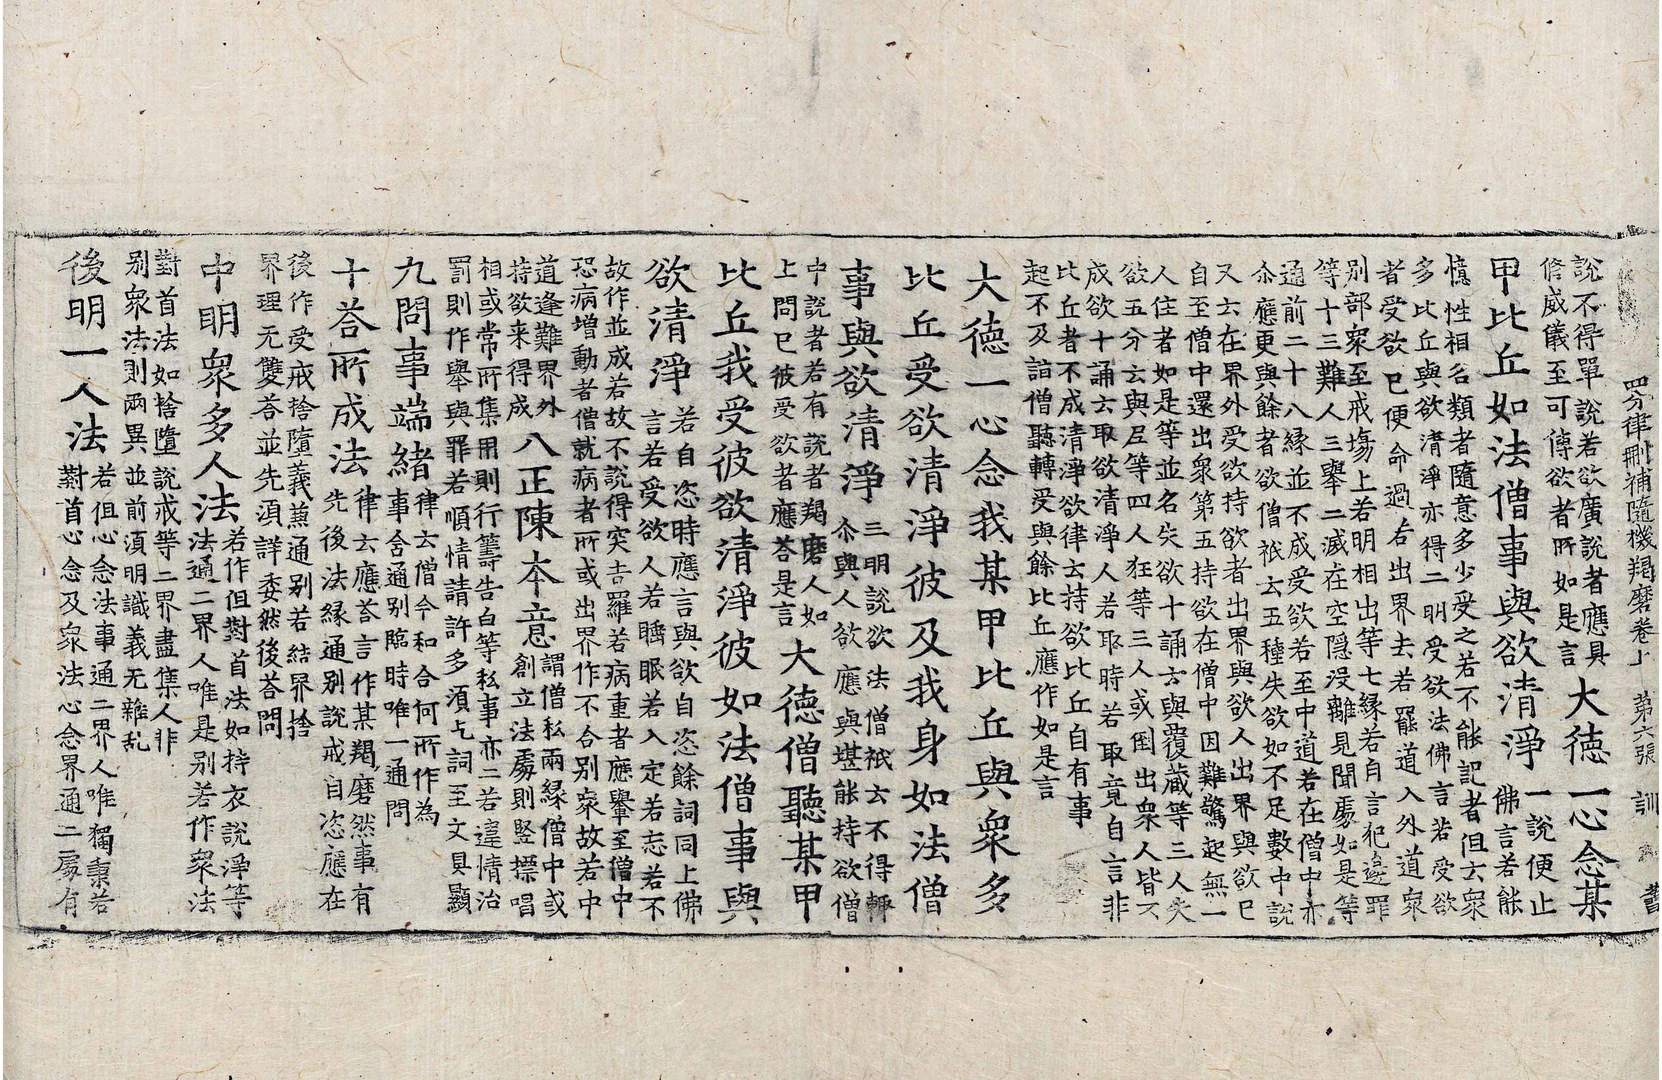 四分律刪補隨機羯磨卷上 第六張 訓
說不得單說若欲廣說者應具
脩威儀至可傳欲者所如是言大德一心念某
甲比丘如法僧事與欲清淨一說便止
佛言若能
憶性相名類者隨意多少受之若不能記者但云衆
多比丘與欲清淨亦得二明受欲法佛言若受欲
者受欲已便命過若出界去若罷道入外道衆
別部衆至戒場上若明相出等七緣若自言犯邊罪
等十三難人三舉二滅在空隱沒離見聞處如是等
通前二十八緣並不成受欲若至中道若在僧中亦
尒應更與餘者欲僧祇云五種失欲如不足數中說
又云在界外受欲持欲者出界與欲人出界與欲已
自至僧中還出衆第五持欲在僧中因難驚起無一
人住者如是等並名失欲十誦云與覆藏等三人失
欲五分云與尼等四人狂等三人或倒出衆人皆不
成欲十誦云取欲清淨人若取時若取竟自言非
比丘者不成清淨欲律云持欲比丘自有事
起不及詣僧聽轉受與餘比丘應作如是言
大德一心念我某甲比丘與衆多
比丘受欲清淨彼及我身如法僧
事與欲清淨三明說欲法僧祇云不得輒
尒與人欲應與堪能持欲僧
中說者若有說者羯磨人如
上問已彼受欲者應荅是言大德僧聽某甲
比丘我受彼欲清淨彼如法僧事與
欲清淨若自恣時應言與欲自恣餘詞同上佛
言若受欲人若睡眠若入定若忘若不
故作並成若故不說得突吉羅若病重者應舉至僧中
恐病增動者僧就病者所或出界作不合別衆故若中
道逢難界外
持欲来得成八正陳本意謂僧私兩緣僧中或
創立法處則竪摽唱
相或常所集用則行籌告白等私事亦二若違情治
罰則作舉與罪若順情請許多須乞詞至文具顯
九問事端緒律云僧今和合何所作為
事舍通別臨時唯一通問
十荅所成法律云應荅言作某羯磨然事有
先後法緣通別說戒自恣應在
後作受戒捨墮義兼通別若結界捨
界理无雙荅並先須詳委然後荅問
中明衆多人法若作但對首法如持衣說淨等
法通二界人唯是別若作衆法
對首法如捨墮說戒等二界盡集人非
別衆法則兩異並前須明識義无雜乱
後明一人法若但心念法事通二界人唯獨秉若
對首心念及衆法心念界通二處有